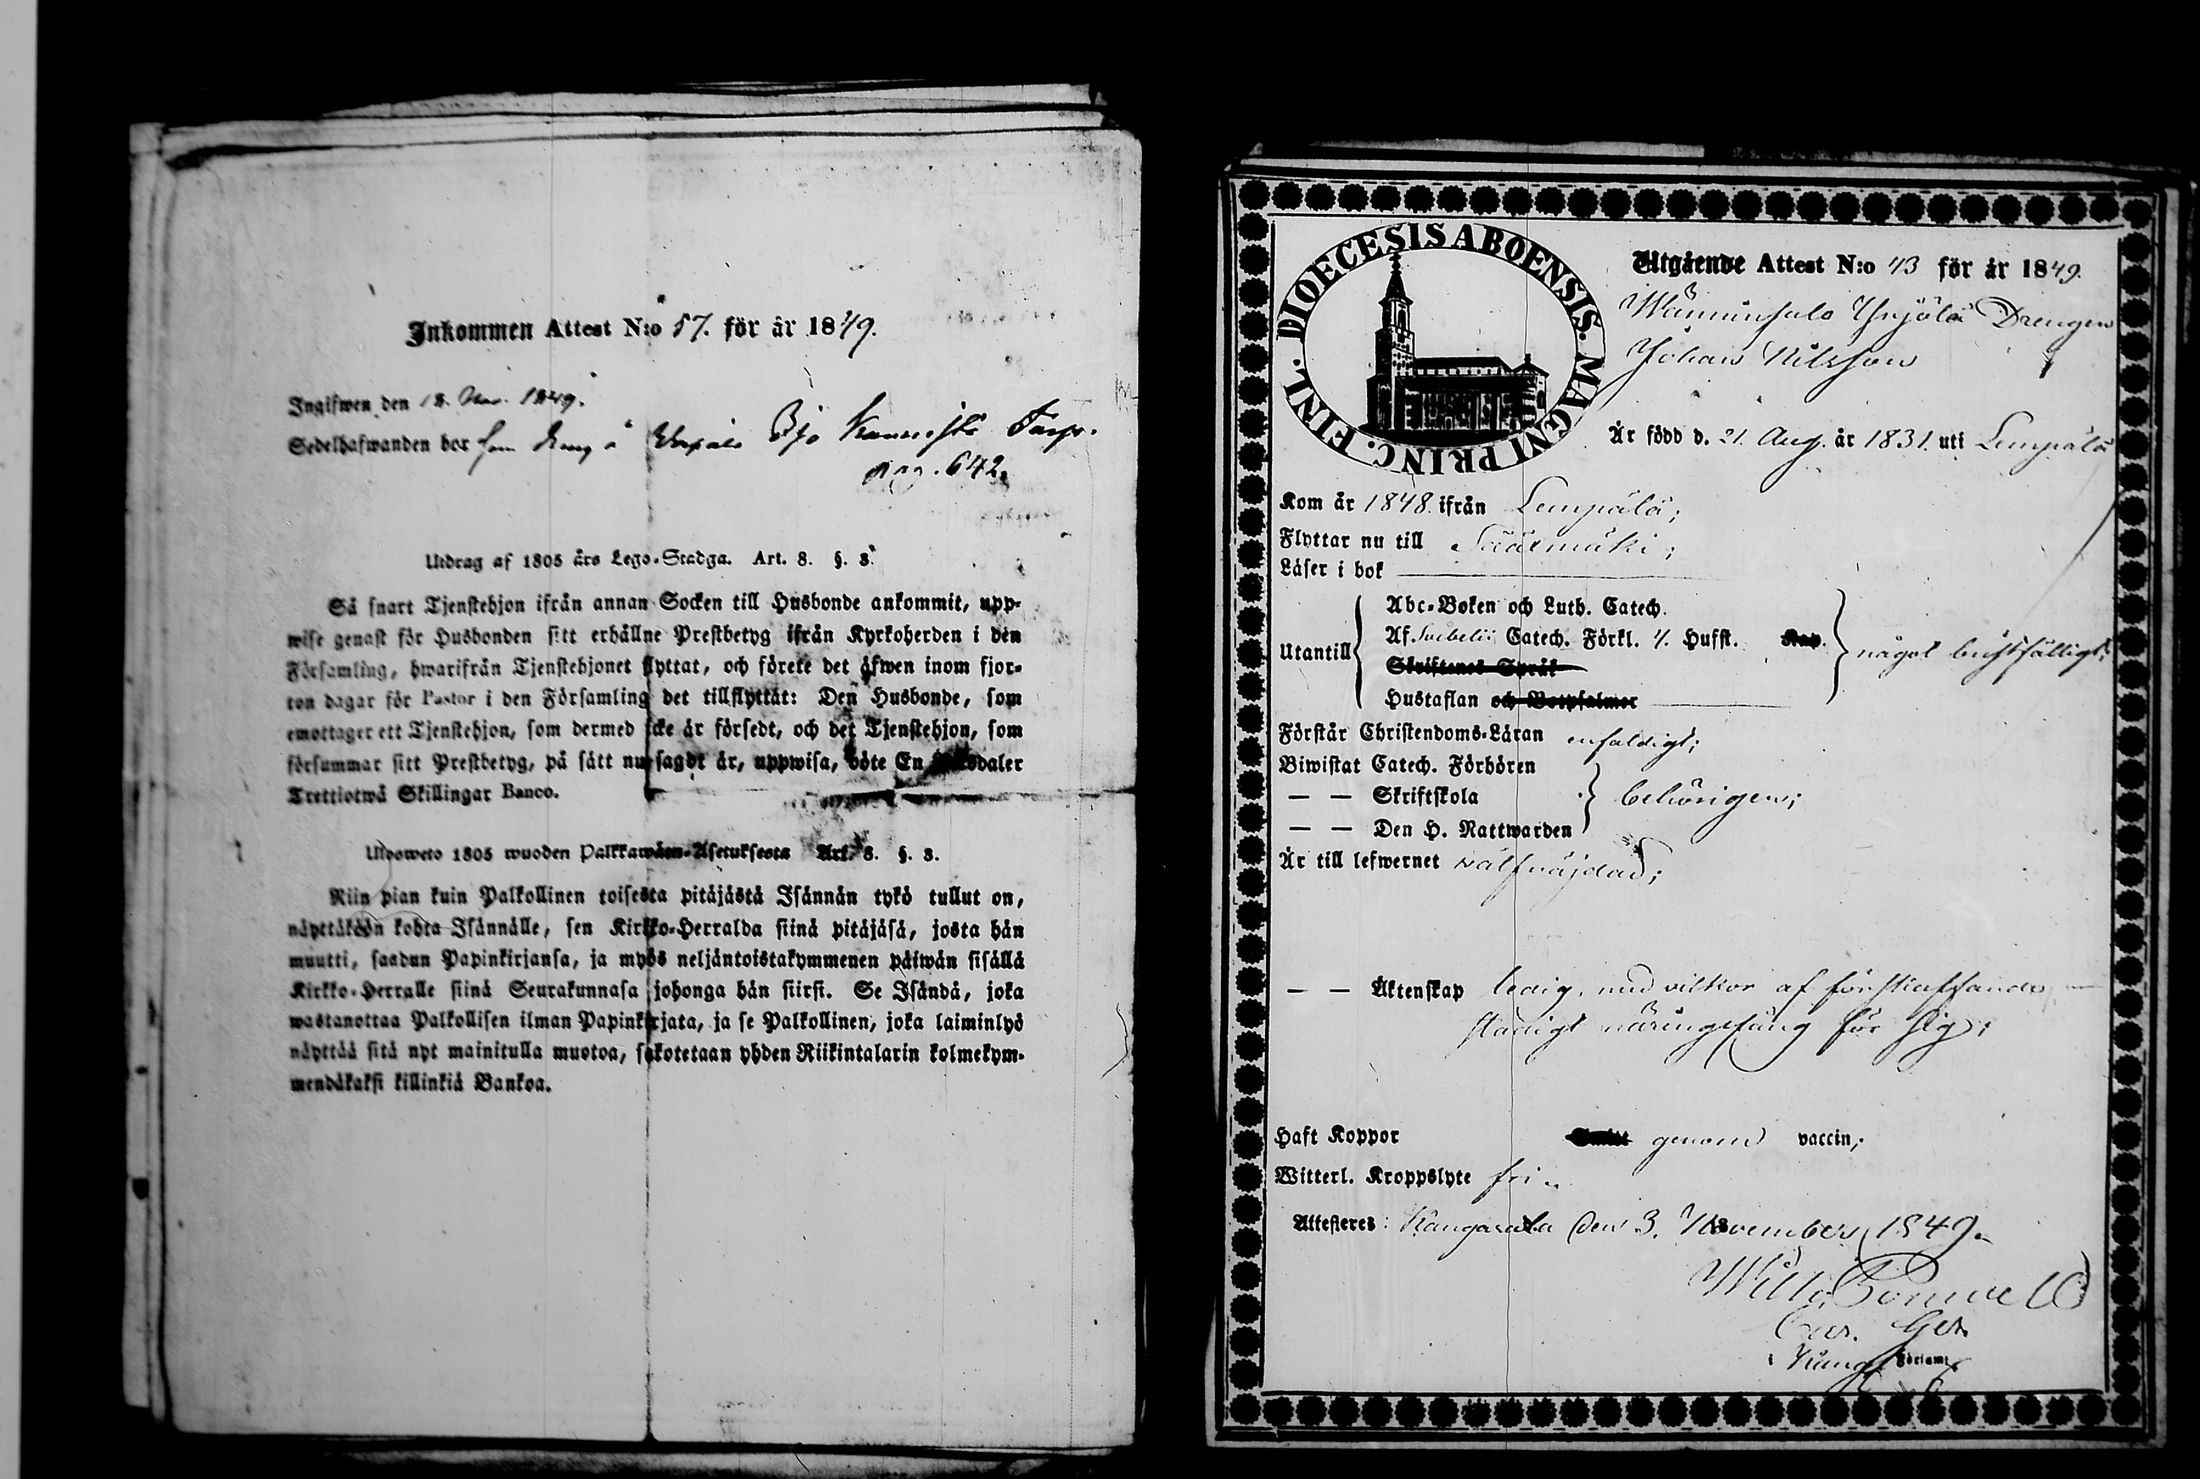 Inkommen Attest N:o 57. för år 1849.
Ingifwen den 18. Nov. 1849.
Sedelhafwanden bor som dreng å Bjo Kannisto Torp.
pag. 642.
Utdrag af 1805 års Lego-Stadga. Art. 8. §. 3.
Så snart Tjenstehjon ifrån annan Socken till Husbonde ankommit, upp-
wise genast för Husbonden sitt erhållne Prestbetyg ifrån Kyrkoherden i den
Församling, hwarifrån Tjenstehjonet flyttat, och förete det äfwen inom fjor-
ton dagar för Pastor i den Församling det tillflyttat: Den Husbonde, som
emottager ett Tjenstehjon, som dermed icke är försedt, och det Tjenstehjon, som
försummar sitt Prestbetyg, på sätt nu sagdt är, uppwisa, böte En Riksdaler
Trettiotwå Skillingar Banco.
Ulosweto 1805 wuoden Palkkawäen-Asetuksesta Art. 8. §. 3.
Niin pian kuin Palkollinen toisesta pitäjästä Isännän tykö tullut on,
näyttäkään kohta Isännälle, sen Kirkko-Herralda siinä pitäjäsä, josta hän
muutti, saadun Papinkirjansa, ja myös neljäntoistakymmenen päiwän sisällä
Kirkko-Herralle siinä Seurakunnasa johonga hän siirsi. Se Isändä, joka
wastanottaa Palkollisen ilman Papinkirjata, ja se Palkollinen, joka laiminlyö
näyttää sitä nyt mainitulla muotoa, sakotetaan yhden Riikintalarin kolmekym-
mendäkaksi killinkiä Bankoa.
DIOECESIS ABOENSIS. MAGNI PRINC. FINL.
Utgående Attest N:o 43 för år 1849.
Drengen
Johan Nilsson
Är född d. 21. Aug. år 1831. uti Lempälä
Kom år 1848. ifrån Lempälä;
Flyttar nu till Sääxmäki;
Läser i bok
Abc-Boken och Luth. Catech.
Af Svebelii Catech. Förkl. 4. Hufst. Kap.
Utantill något bristfälligt;
Skriftenes Språk
Hustaflan och Botpsalmer
Förstår Christendoms-Läran enfaldigt;
Biwistat Catech. Förhören
— — Skriftskola behörigen;
— — Den H. Nattwarden
Är till lefwernet välfräjdad;
— — Äktenskap ledig, med vilkor af
stadigt näringsfång för sig;
Haft Koppor genom vaccin;
Witterl. Kroppslyte fri
Attesteres: Kangasala den 3. November 1849.
Wilh.
Församl.